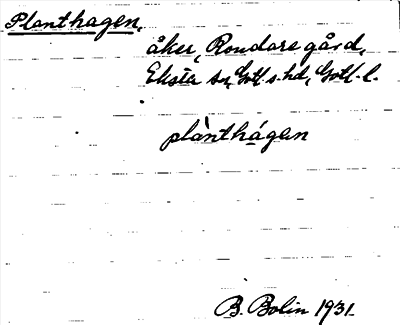 Planthagen,
åker, Rondare gård,
Eksta sn, Gotl. s. hd, Gotl. l.
plànthágen
B. Bolin 1931.